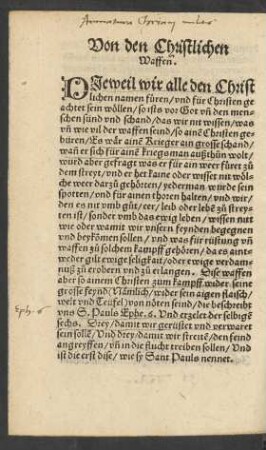 Von den Christlichen
Waffen.
DJeweil wir alle den Christ
lichen namen füren/vnd für Christen ge
achtet sein wöllen/so ists vor Got vñ den men
schen sünd vnd schand/das wir nit wissen/was
vñ wie vil der waffen seind/so ainē Christen ge
büren/Es wär ainē Krieger ain grosse schand/
wañ er sich für ainē kriegsman außthün wolt/
wurd aber gefragt was er für ain weer füret zü
dem streyt/vnd er het kaine oder wisset nit wöl
che weer darzü gehörten/yederman wurde sein
spotten/vnd für ainen thoren halten/vnd wir/
den es nit vmb güt/eer/leib oder lebē zü strey
ten ist/sonder vmb das ewig leben/wissen nitt
wie oder wamit wir vnsern feynden begegnen
vnd beykömen sollen/vnd was für rüstung vñ
waffen zü solchen kampff gehören/da es aint
weder gilt ewige seligkait/oder ewige verdam
nuß zü erobern vnd zü erlangen. Dise waffen
aber so ainem Christen zum kampff wider seine
grosse feynd (Nämlich/wider sein aigen flaisch/
welt vnd Teüfel) von nöten seind/die beschreibt
vns S. Pauls Ephe. 6. Vnd erzelet der selbigē
sechs. Drey/damit wir gerüstet vnd verwaret
sein sollē/Vnd drey/damit wir streitē/den feind
angreyffen/vñ in die flucht treiben sollen/Vnd
ist die erst dise/wie sy Sant Pauls nennet.
Eph. 6